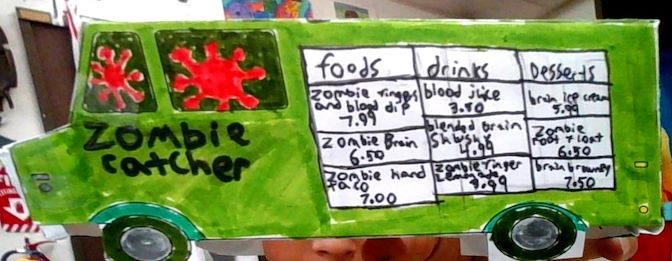 Zombie
catcher
foods
zombie finges
and blood dip
7.99
Zombie Brain
6.50
Zombie hand
taco
7.00
drinks
blood juice
3.50
blended brain
9.99
zombie finger
9.99
Desserts
brain ice cream
5.99
Zombie
root float
6.50
brain browney
7.50